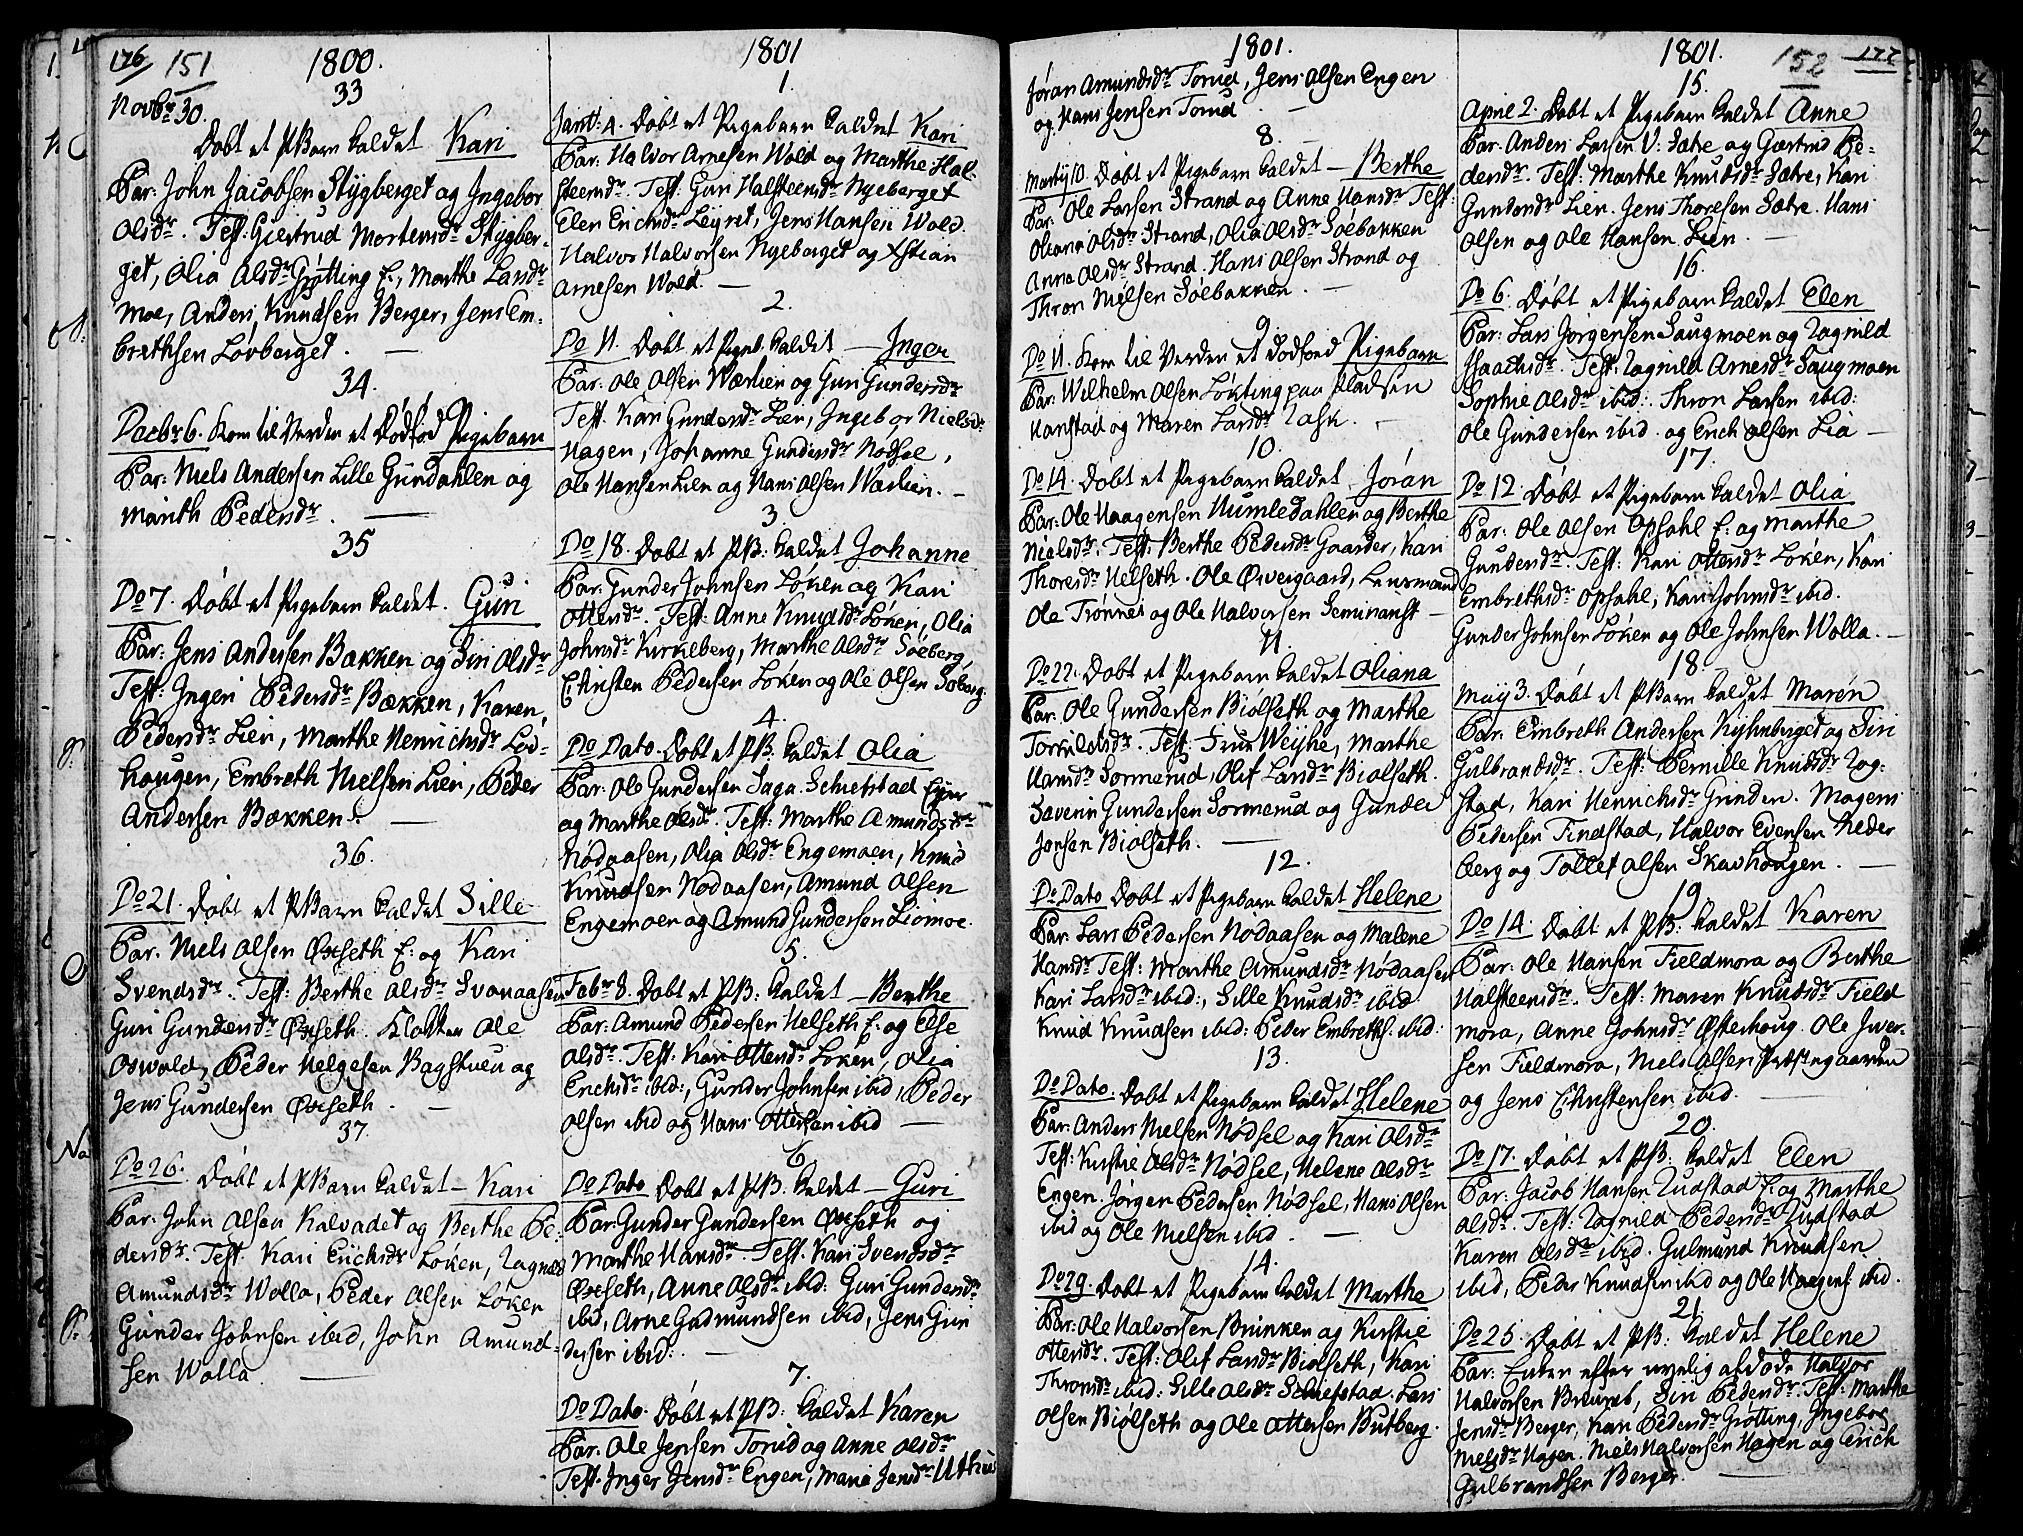 176 151 1800.
33
Novbr 30.
Døbt et PBarn kaldet Kari
Par: John Jacobsen Stygberget og Ingebor
Olsdr. Test: Giertrud Mortensdr Stygber-
get, Olia Olsdr Grøtting E., Marthe Larsdr
Moe, Anders Knudsen Berger, Jens Em-
brethsen Løvberget. —
34.
Decbr 6. Kom til Verden et Dødfød Pigebarn
Par: Niels Andersen Lille Gundahlen og
Marith Pedersdr. —
35
Do 7. Døbt et Pigebarn kaldet. Guri
Par: Jens Andersen Bækken og Siri Olsdr
Test: Ingeri Pedersdr Bækken, Karen
Pedersdr Lien, Marthe Henrichsdr Løv-
hougen, Embreth Nielsen Lien, Peder
Andersen Bækken. —
36.
Do 21. Døbt et PBarn kaldet Sille
Par. Niels Olsen Øxseth E: og Kari
Svendsdr. Test: Berthe Olsdr Svenaasen
Guri Gundersdr Øxseth. Klokker Ole
Oswold, Peder Helgesen Bagstuen og
Jens Gundersen Øxseth. —
37.
Do 26. Døbt et PBarn kaldet — Kari
Par: John Olsen Kalvadet og Berthe Pe-
dersdr. Test. Kari Erichsdr Løken, Ragnild
Amundsdr Wolla, Peder Olsen Løken
Gunder Johnsen ibid, John Amund-
sen Wolla. —
1801
1.
Janu: 4. Døbt et Pigebarn kaldet Kari
Par: Halvor Arnesen Wold og Marthe Hal-
steensdr. Test: Guri Halsteensdr Nyeberget
Elen Erichsdr Leyret, Jens Hansen Wold.
Halvor Halvorsen Nyeberget og Xstian
Arnesen Wold. —
2.
Do 11. Døbt et Pigeb. kaldet — Inger
Par: Ole Olsen Wærlien og Guri Gundersdr
Test. Kari Gundersdr Lien, Ingebor Nielsdr
Hagen, Johanne Gundersdr Nodsel,
Ole Hansen Lien og Hans Olsen Wærlien. —
3.
Do 18. Døbt et PB: kaldet Johanne
Par: Gunder Johnsen Løken og Kari
Ottersdr. Test: Anne Knudsdr Løken, Olia
Johnsdr Kirkeberg, Marthe Olsdr Søeberg,
Christen Pedersen Løken og Ole Olsen Søberg.
4.
Do Dato. Døbt et PB. kaldet Olia
Par: Ole Gundersen Saga. Schiefstad Eyer
og Marthe Olsdr. Test: Marthe Amundsdr
Nødaasen, Olia Olsdr Engemoen, Knud
Knudsen Nødaasen, Amund Olsen
Engemoen og Amund Gundersen Liømoe.
5.
Febr 8. Døbt et PB: kaldet — Berthe
Par: Amund Pedersen Helseth E: og Else
Olsdr. Test: Kari Ottersdr Løken, Olia
Erichsdr ibid:, Gunder Johnsen ibid, Peder
Olsen ibid og Hans Ottersen ibid —
6.
Do Dato Døbt et PB. kaldet — Guri
Par: Gunder Gundersen Øxseth og
Marthe Hansdr Test. Kari Svendsdr
Øxseth, Anne Olsdr ibid: Guri Gundersdr
ibid, Arne Gudmundsen ibid, Jens Gun
dersen ibid: —
7.
Do Dato. Døbt et PB: kaldet Karen
Par. Ole Jensen Torud og Anne Olsdr
Test. Inger Jensdr Engen, Marie Jensdr Uthuus
1801.
Jøran Amundsdr Torud, Jens Olsen Engen
og Hans Jensen Torud —
8.
Martij 10. Døbt et Pigebarn kaldet — Berthe
Par: Ole Larsen Strand og Anne Hansdr Test:
Oliana Olsdr Strand, Olia Olsdr Søebakken
Anna Olsdr Strand. Hans Olsen Strand og
Thron Nielsen Søebakken. —
9.
Do 11. Kom til Verden et dødfød Pigebarn
Par: Wilhelm Olsen Løkting paa Pladsen
Hanstad og Maren Larsdr Rask. —
10.
Do 14. Døbt et Pigebarn kaldet. Jøran
Par: Ole Haagensen Humledahlen og Berthe
Nielsdr. Test: Berthe Pedersdr Gaarder, Kari
Thoresdr Helseth. Ole Øvergaard, Lensmand
Ole Trønnes og Ole Halvorsen Seminarist —
11.
Do 22. Døbt et Pigebarn kaldet Oliana
Par. Ole Gundersen Biølseth og Marthe
Torkildsdr. Test: Frue Weyhe, Marthe
Hansdr Sormerud, Olif Larsdr Biølseth.
Severin Gundersen Sormerud og Gunder
Jonsen Biølseth. —
12.
Do Dato Døbt et Pigebarn kaldet Helene
Par. Lars Pedersen Nødaasen og Malene
Hansdr Test: Marthe Amundsdr Nødaasen
Kari Larsdr ibid:, Sille Knudsdr ibid
Knud Knudsen ibid: Peder Embreths: ibid:
13.
Do Dato. Døbt et Pigebarn kaldet Helene
Par: Anders Nielsen Nødsel og Kari Olsdr
Test: Kirstie Olsdr Nødsel, Helene Olsdr
Engen. Jørgen Pedersen Nødsel, Hans Olsen
ibid og Ole Nielsen ibid. —
14.
Do 29. Døbt et Pigebarn kaldet Marthe
Par: Ole Halvorsen Brinken og Kirstie
Ottersdr. Test: Olif Larsdr Biølseth, Kari
Thronsdr ibid: Sille Olsdr Schiefstad. Lars
Olsen Biølseth og Ole Ottersen Butberg.
1801. 152 177
15.
April 2. Døbt et Pigebarn kaldet Anne
Par. Anders Larsen V: Sætre og Giertrud Pe-
dersdr. Test: Marthe Knudsdr Sætre, Kari
Gundersdr Lien. Jens Thoresen Sætre. Hans
Olsen og Ole Hansen Lien. —
16.
Do 6. Døbt et Pigebarn kaldet Elen
Par: Lars Jørgensen Saugmoen og Ragnild
Isaachsdr. Test: Ragnild Arnesdr Saugmoen
Sophie Olsdr ibid: Thron Larsen ibid:
Ole Gundersen ibid. og Erich Olsen Lia —
17.
Do 12. Døbt et Pigebarn kaldet Olia
Par: Ole Olsen Opsahl E: og Marthe
Gundersdr. Test: Kari Ottersdr Løken, Kari
Embrethsdr Opsahl, Kari Johnsdr ibid.
Gunder Johnsen Løken og Ole Johnsen Wolla. —
18.
May 3. Døbt et PBarn kaldet Maren
Par. Embreth Andersen Kyhnberget og Siri
Gulbrandsdr. Test: Pernille Knudsdr Rog-
stad, Kari Henrichsdr Grinden. Mogens
Pedersen Findstad, Halvor Evensen Neder
berg og Tollef Olsen Skavhougen. —
19
Do 14. Døbt et PB: kaldet Karen
Par: Ole Hansen Fieldmora og Berthe
Halsteensdr. Test: Maren Knudsdr Field
mora, Anne Johnsdr Østerhoug. Ole Iwer-
sen Fieldmora, Niels Olsen Præstegaarden
og Jens Christensen ibid. —
20.
Do 17. Døbt et PB: kaldet Elen
Par: Jacob Hansen Rudstad E: og Marthe
Olsdr. Test: Ragnild Pedersdr Rudstad
Karen Olsdr ibid. Gulmund Knudsen
ibid, Peder Knudsen ibid og Ole Haagens: ibid.
21.
Do 25. Døbt et PB: kaldet Helene
Par: Enken efter nyelig afdøde Halvor
Halvorsen Siri Pedersdr. Test: Marthe
Jensdr Berger, Kari Pedersdr Grøtting, Ingebor
Nielsdr Hagen. Niels Halvorsen Hagen og Erich
Gulbrandsen Berger. —